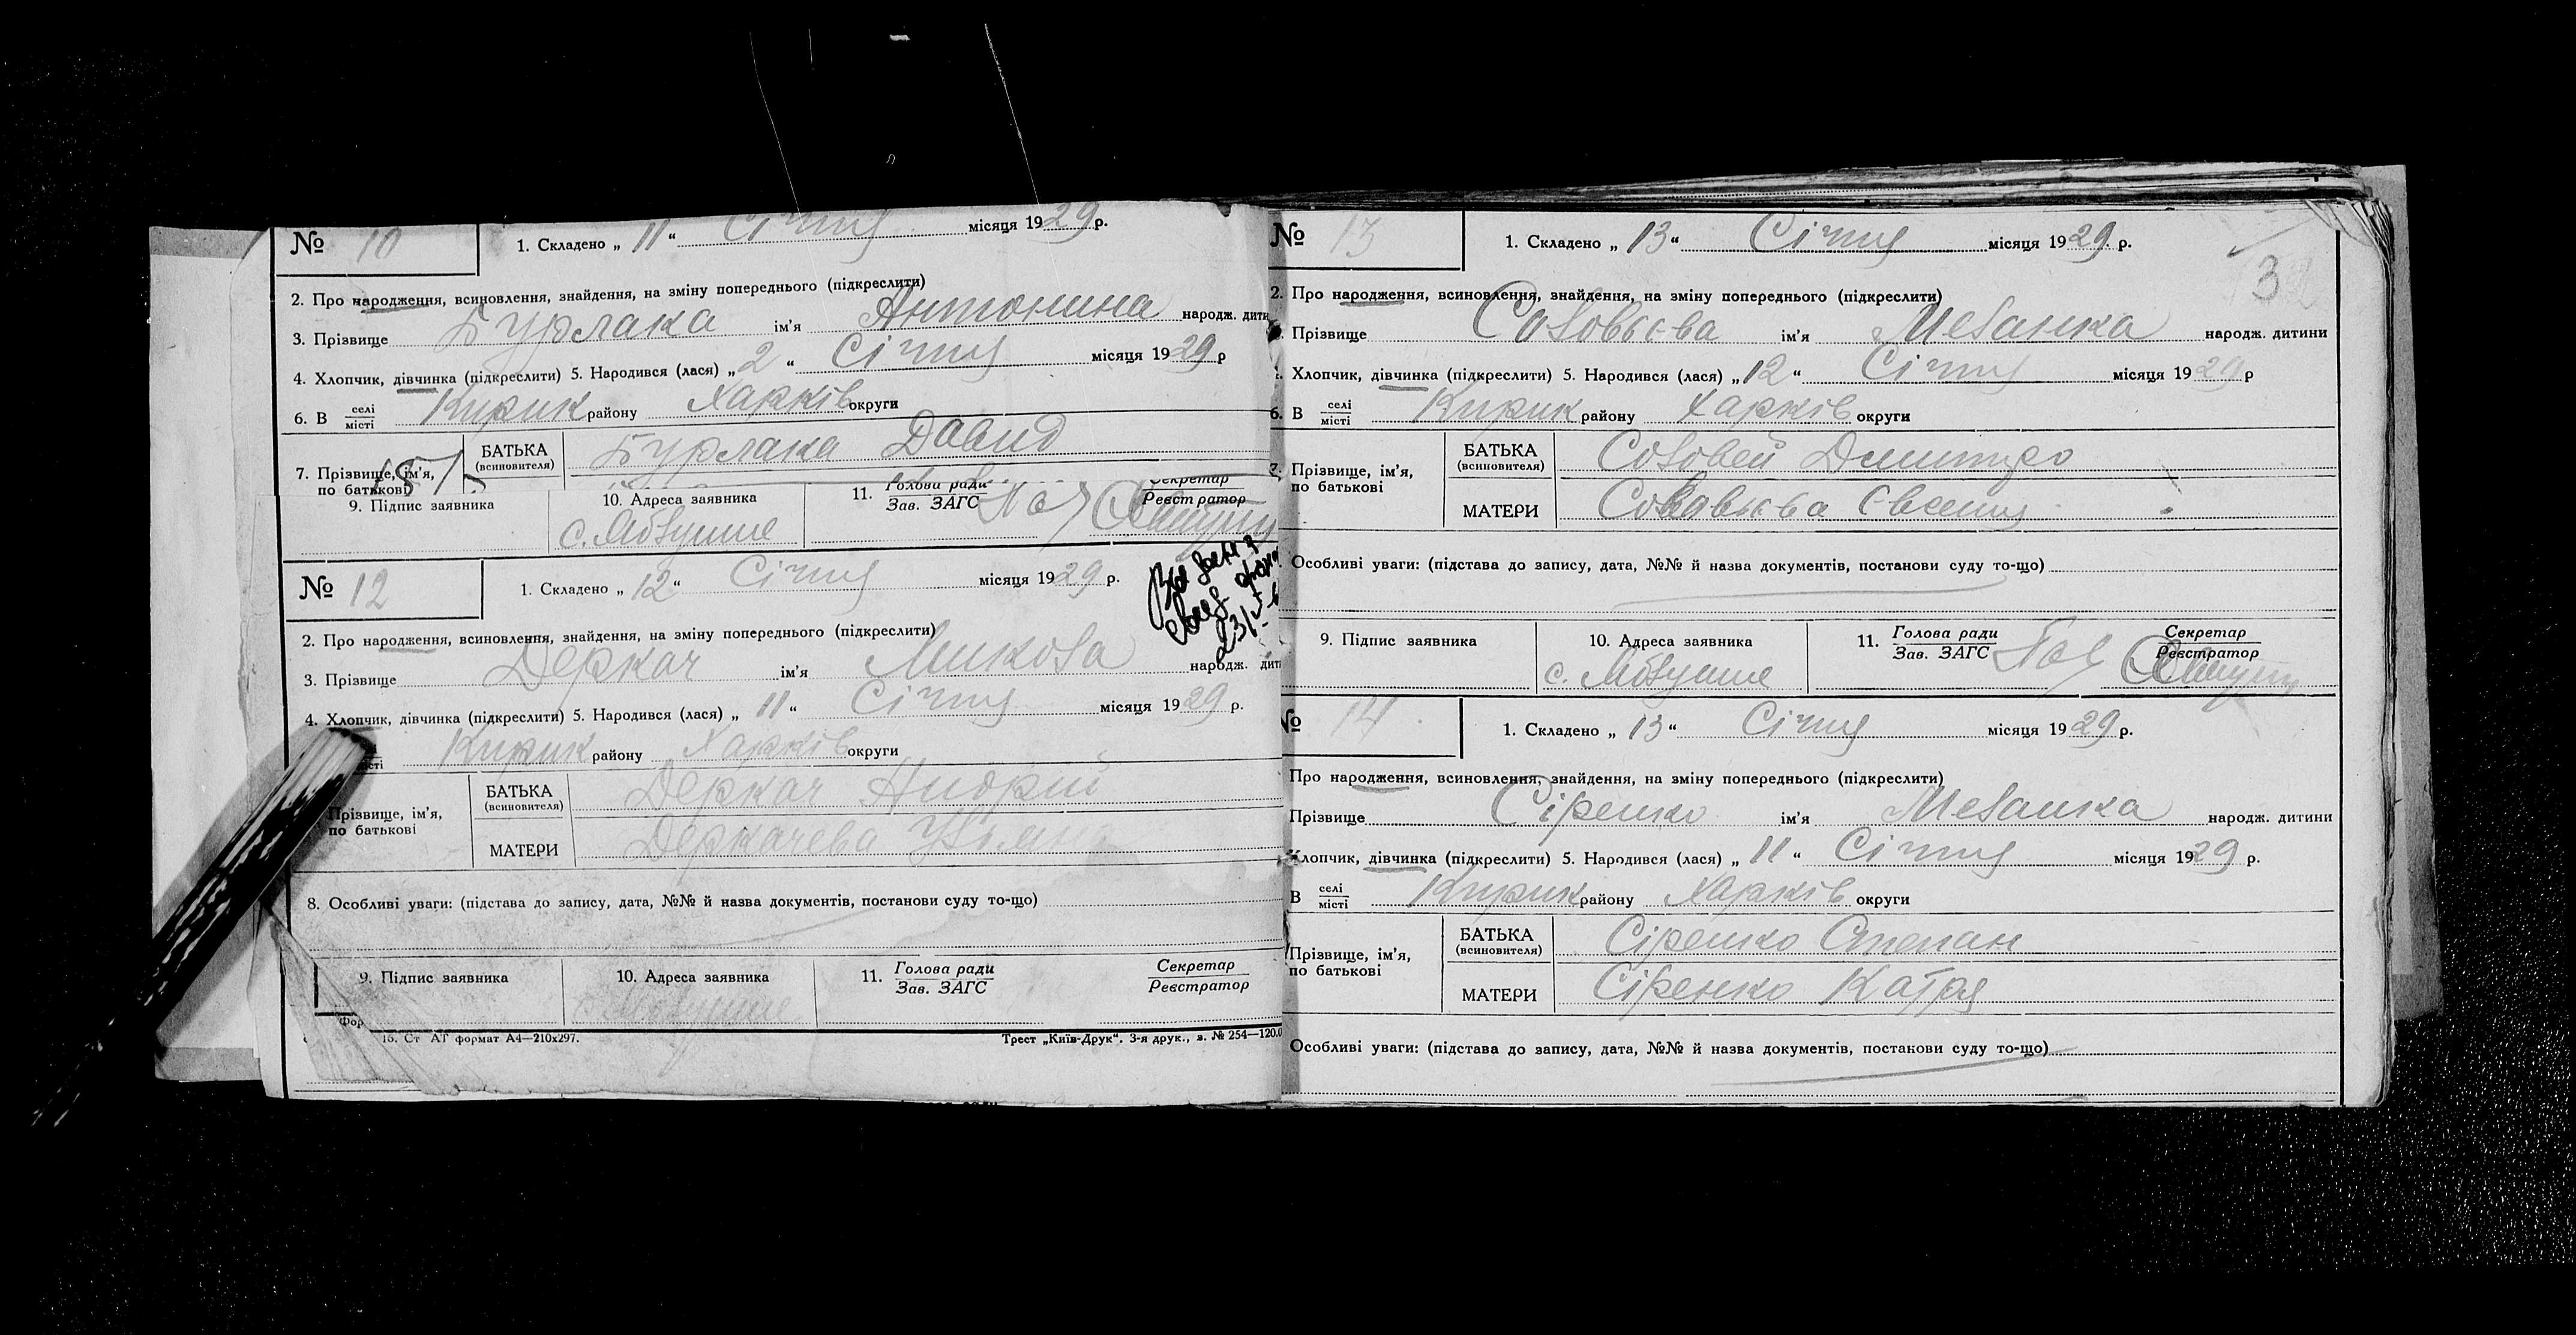 № 10
1. Складено „ 11 “ Січня місяця 1929 р.
2. Про народження, всиновлення, знайдення, на зміну попереднього (підкреслити)
3. Прізвище Бурлака ім'я Антонина народж. дити
4. Хлопчик, дівчинка (підкреслити) 5. Народився (лася) „ 2 “ Січня місяця 1929 р
6. В селі місті Кирик району Харків округи
7. Прізвище, ім'я, по батькові
БАТЬКА (всиновителя) Бурлака Давид
9. Підпис заявника
10. Адреса заявника
с. Яблучне
11. Голова ради Зав. ЗАГС
Секретар Реєстратор
№ 12
1. Складено „ 12 “ Січня місяця 1929 р.
2. Про народження, всиновлення, знайдення, на зміну попереднього (підкреслити)
3. Прізвище Деркач ім'я Микола народж. дит
4. Хлопчик, дівчинка (підкреслити) 5. Народився (лася) „ 11 “ Січня місяця 1929 р.
Кирик району Харків округи
Прізвище, ім'я, по батькові
БАТЬКА (всиновителя) Деркач Андрій
МАТЕРИ Деркачева
8. Особливі уваги: (підстава до запису, дата, №№ й назва документів, постанови суду то-що)
9. Підпис заявника
10. Адреса заявника
с. Яблучне
11. Голова ради Зав. ЗАГС
Секретар Реєстратор
Фор
15. Ст АТ формат А4—210х297.
Трест „Київ-Друк“. 3-я друк., з. № 254—120.0
№ 13
1. Складено „ 13 “ Січня місяця 1929 р.
3
2. Про народження, всиновлення, знайдення, на зміну попереднього (підкреслити)
Прізвище Соловьєва ім'я Меланка народж. дитини
Хлопчик, дівчинка (підкреслити) 5. Народився (лася) „ 12 “ Січня місяця 1929 р
6. В селі місті Кирик району Харків округи
7. Прізвище, ім'я, по батькові
БАТЬКА (всиновителя) Соловей Дмитро
МАТЕРИ Соловьєва Євгенія
Особливі уваги: (підстава до запису, дата, №№ й назва документів, постанови суду то-що)
9. Підпис заявника
10. Адреса заявника
с. Яблучне
11. Голова ради Зав. ЗАГС
Секретар Реєстратор
№ 14
1. Складено „ 13 “ Січня місяця 1929 р.
Про народження, всиновлення, знайдення, на зміну попереднього (підкреслити)
Прізвище Сіренко ім'я Меланка народж. дитини
Хлопчик, дівчинка (підкреслити) 5. Народився (лася) „ 11 “ Січня місяця 1929 р.
В селі місті Кирик району Харків округи
Прізвище, ім'я, по батькові
БАТЬКА (всиновителя) Сіренко Степан
МАТЕРИ Сіренко Катря
Особливі уваги: (підстава до запису, дата, №№ й назва документів, постанови суду то-що)